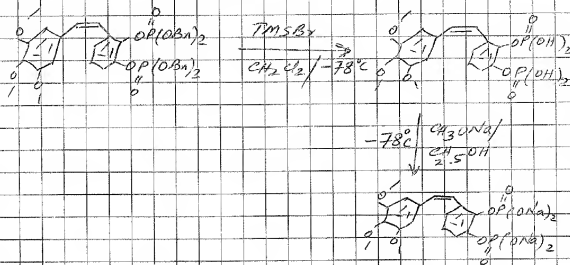 O
OP(OBn)2
OP(OBn)2
O
TMSBr
CH2Cl2/-78°C
O
OP(OH)2
OP(OH)2
O
-78°C
CH3ONa/
C2H5OH
O
OP(ONa)2
OP(ONa)2
O